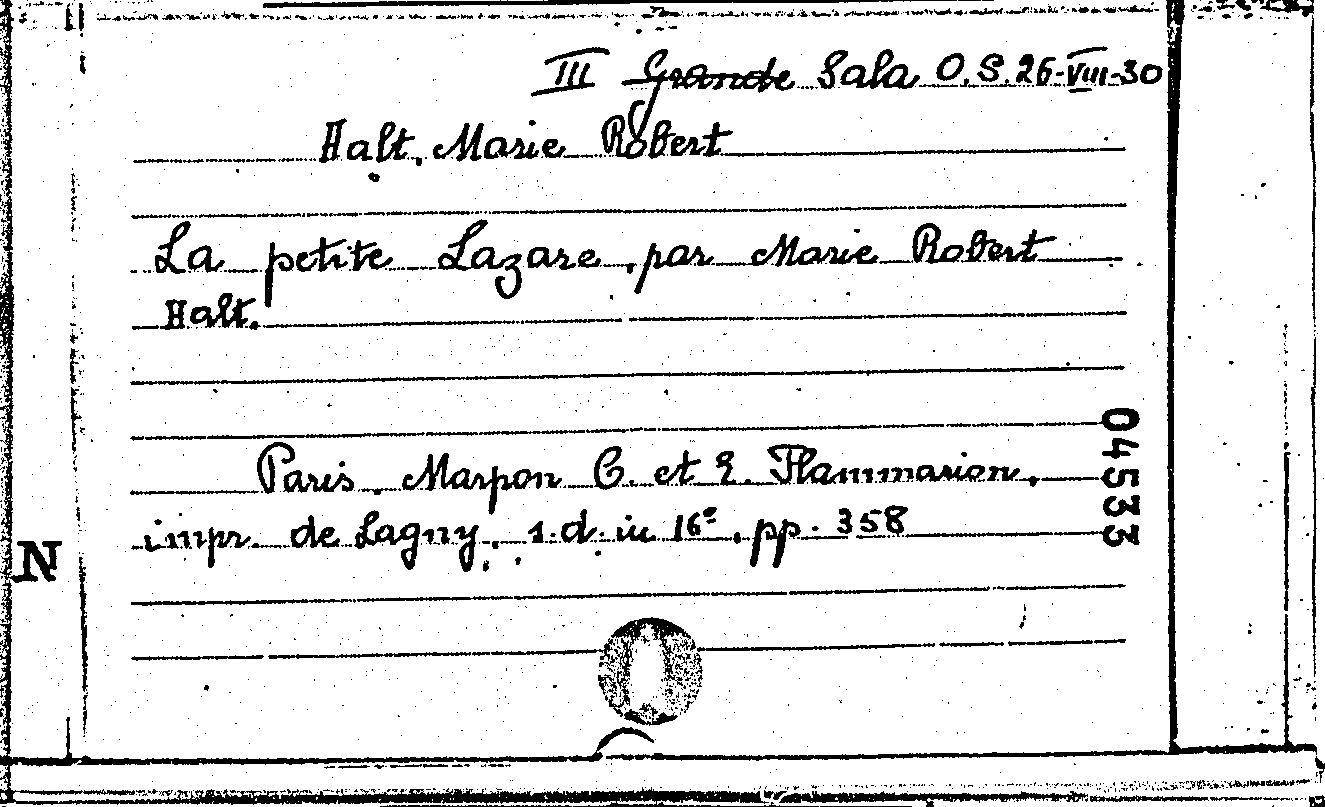 III Grande Sala O.S. 26-VIII-30
Halt, Marie Robert
La petite Lazare, par Marie Robert
Halt.
Paris. Marpon C. et E. Flammarion,
impr. de Lagny, s.d. in 16º, pp. 358
04533
N